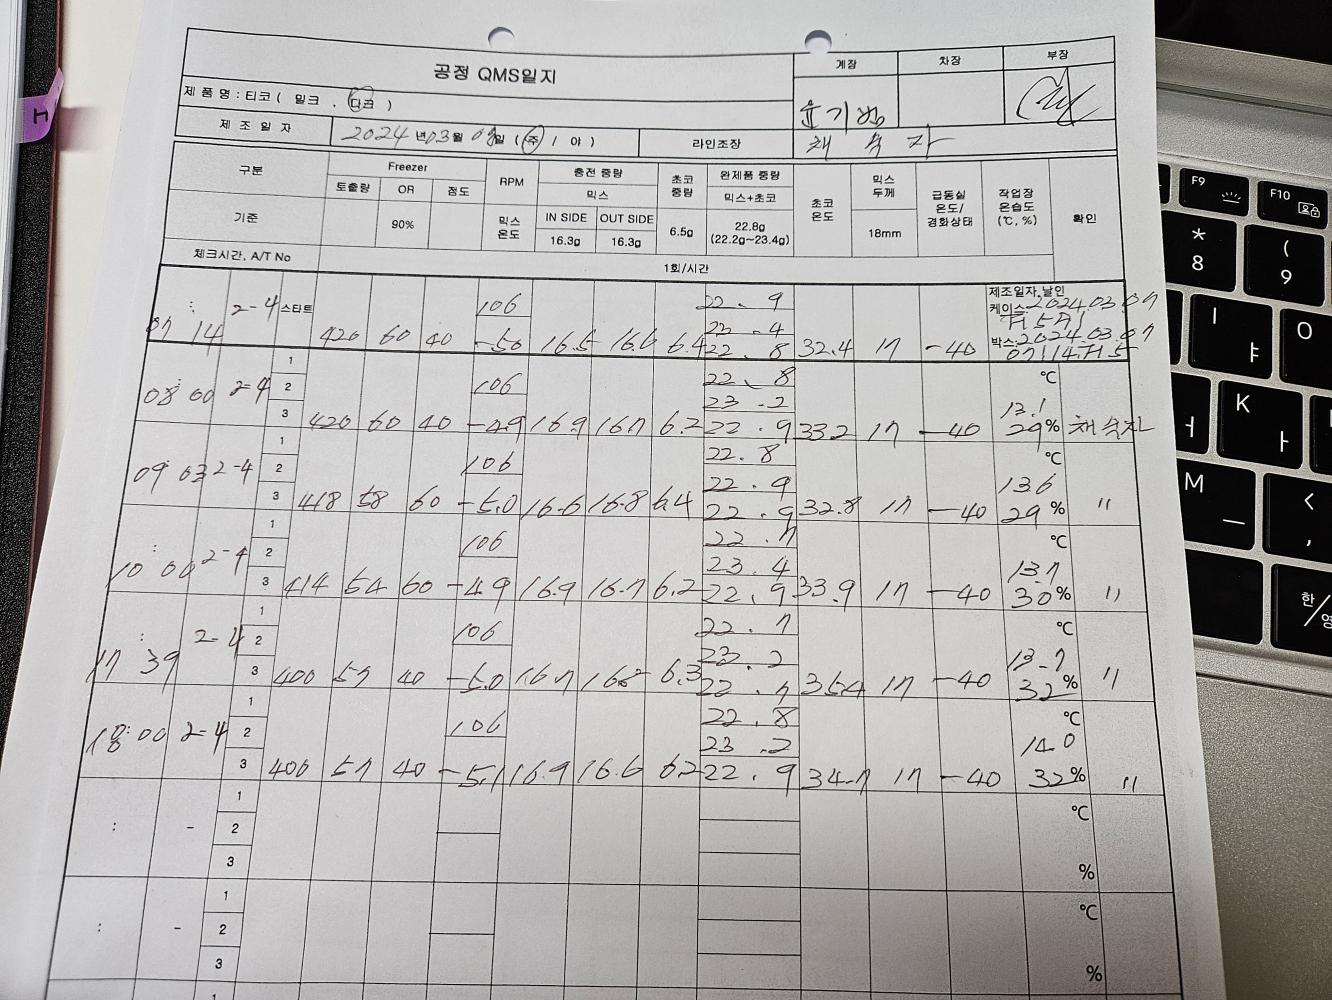 공정 QMS일지
계장 차장 부장
제 품 명 : 티코 ( 밀크 , 다크 )
윤기범
제 조 일 자 2024 년 03 월 일 ( 주 / 야 ) 라인조장 채 숙 자
구분 Freezer RPM 충전 중량 초코 중량 완제품 중량 초코 온도 믹스 두께 급동실 온도/ 경화상태 작업장 온습도 (℃, %) 확인
토출량 OR 점도 믹스 믹스+초코
기준 90% 믹스 온도 IN SIDE OUT SIDE 6.5g 22.8g (22.2g~23.4g) 18mm
16.3g 16.3g
체크시간, A/T No 1회/시간
07 : 14 2-4 스타트 420 60 40 106 -5.0 16.5 16.6 6.4 22.9 23.4 22.8 32.4 17 -40 제조일자,날인 케이스: 2024.03.07 박스: 2024.03.07
08 : 00 2-4 1 2 3 420 60 40 106 -4.9 16.9 16.7 6.2 22.8 23.2 22.9 33.2 17 -40 ℃ 13.1 29% 채숙자
09 : 03 2-4 1 2 3 418 58 60 106 -5.0 16.6 16.8 6.4 22.8 22.9 22.9 32.8 17 -40 ℃ 13.6 29% "
10 : 00 2-4 1 2 3 414 54 60 106 -4.9 16.9 16.7 6.2 22.7 23.4 22.9 33.9 17 -40 ℃ 13.7 30% "
17 : 39 2-4 1 2 3 400 57 40 106 -5.0 16.7 6.3 22.7 23.2 22.7 35.4 17 -40 ℃ 13.7 32% "
18 : 00 2-4 1 2 3 400 57 40 106 -5.1 16.9 16.6 6.2 22.8 23.2 22.9 34.7 17 -40 ℃ 14.0 32% "
: - 1 2 3 ℃ %
: - 1 2 3 ℃ %
1
H
F9 F10
* 8 ( 9
I ㅑ O
K ㅏ
M ㅡ < ,
한/영